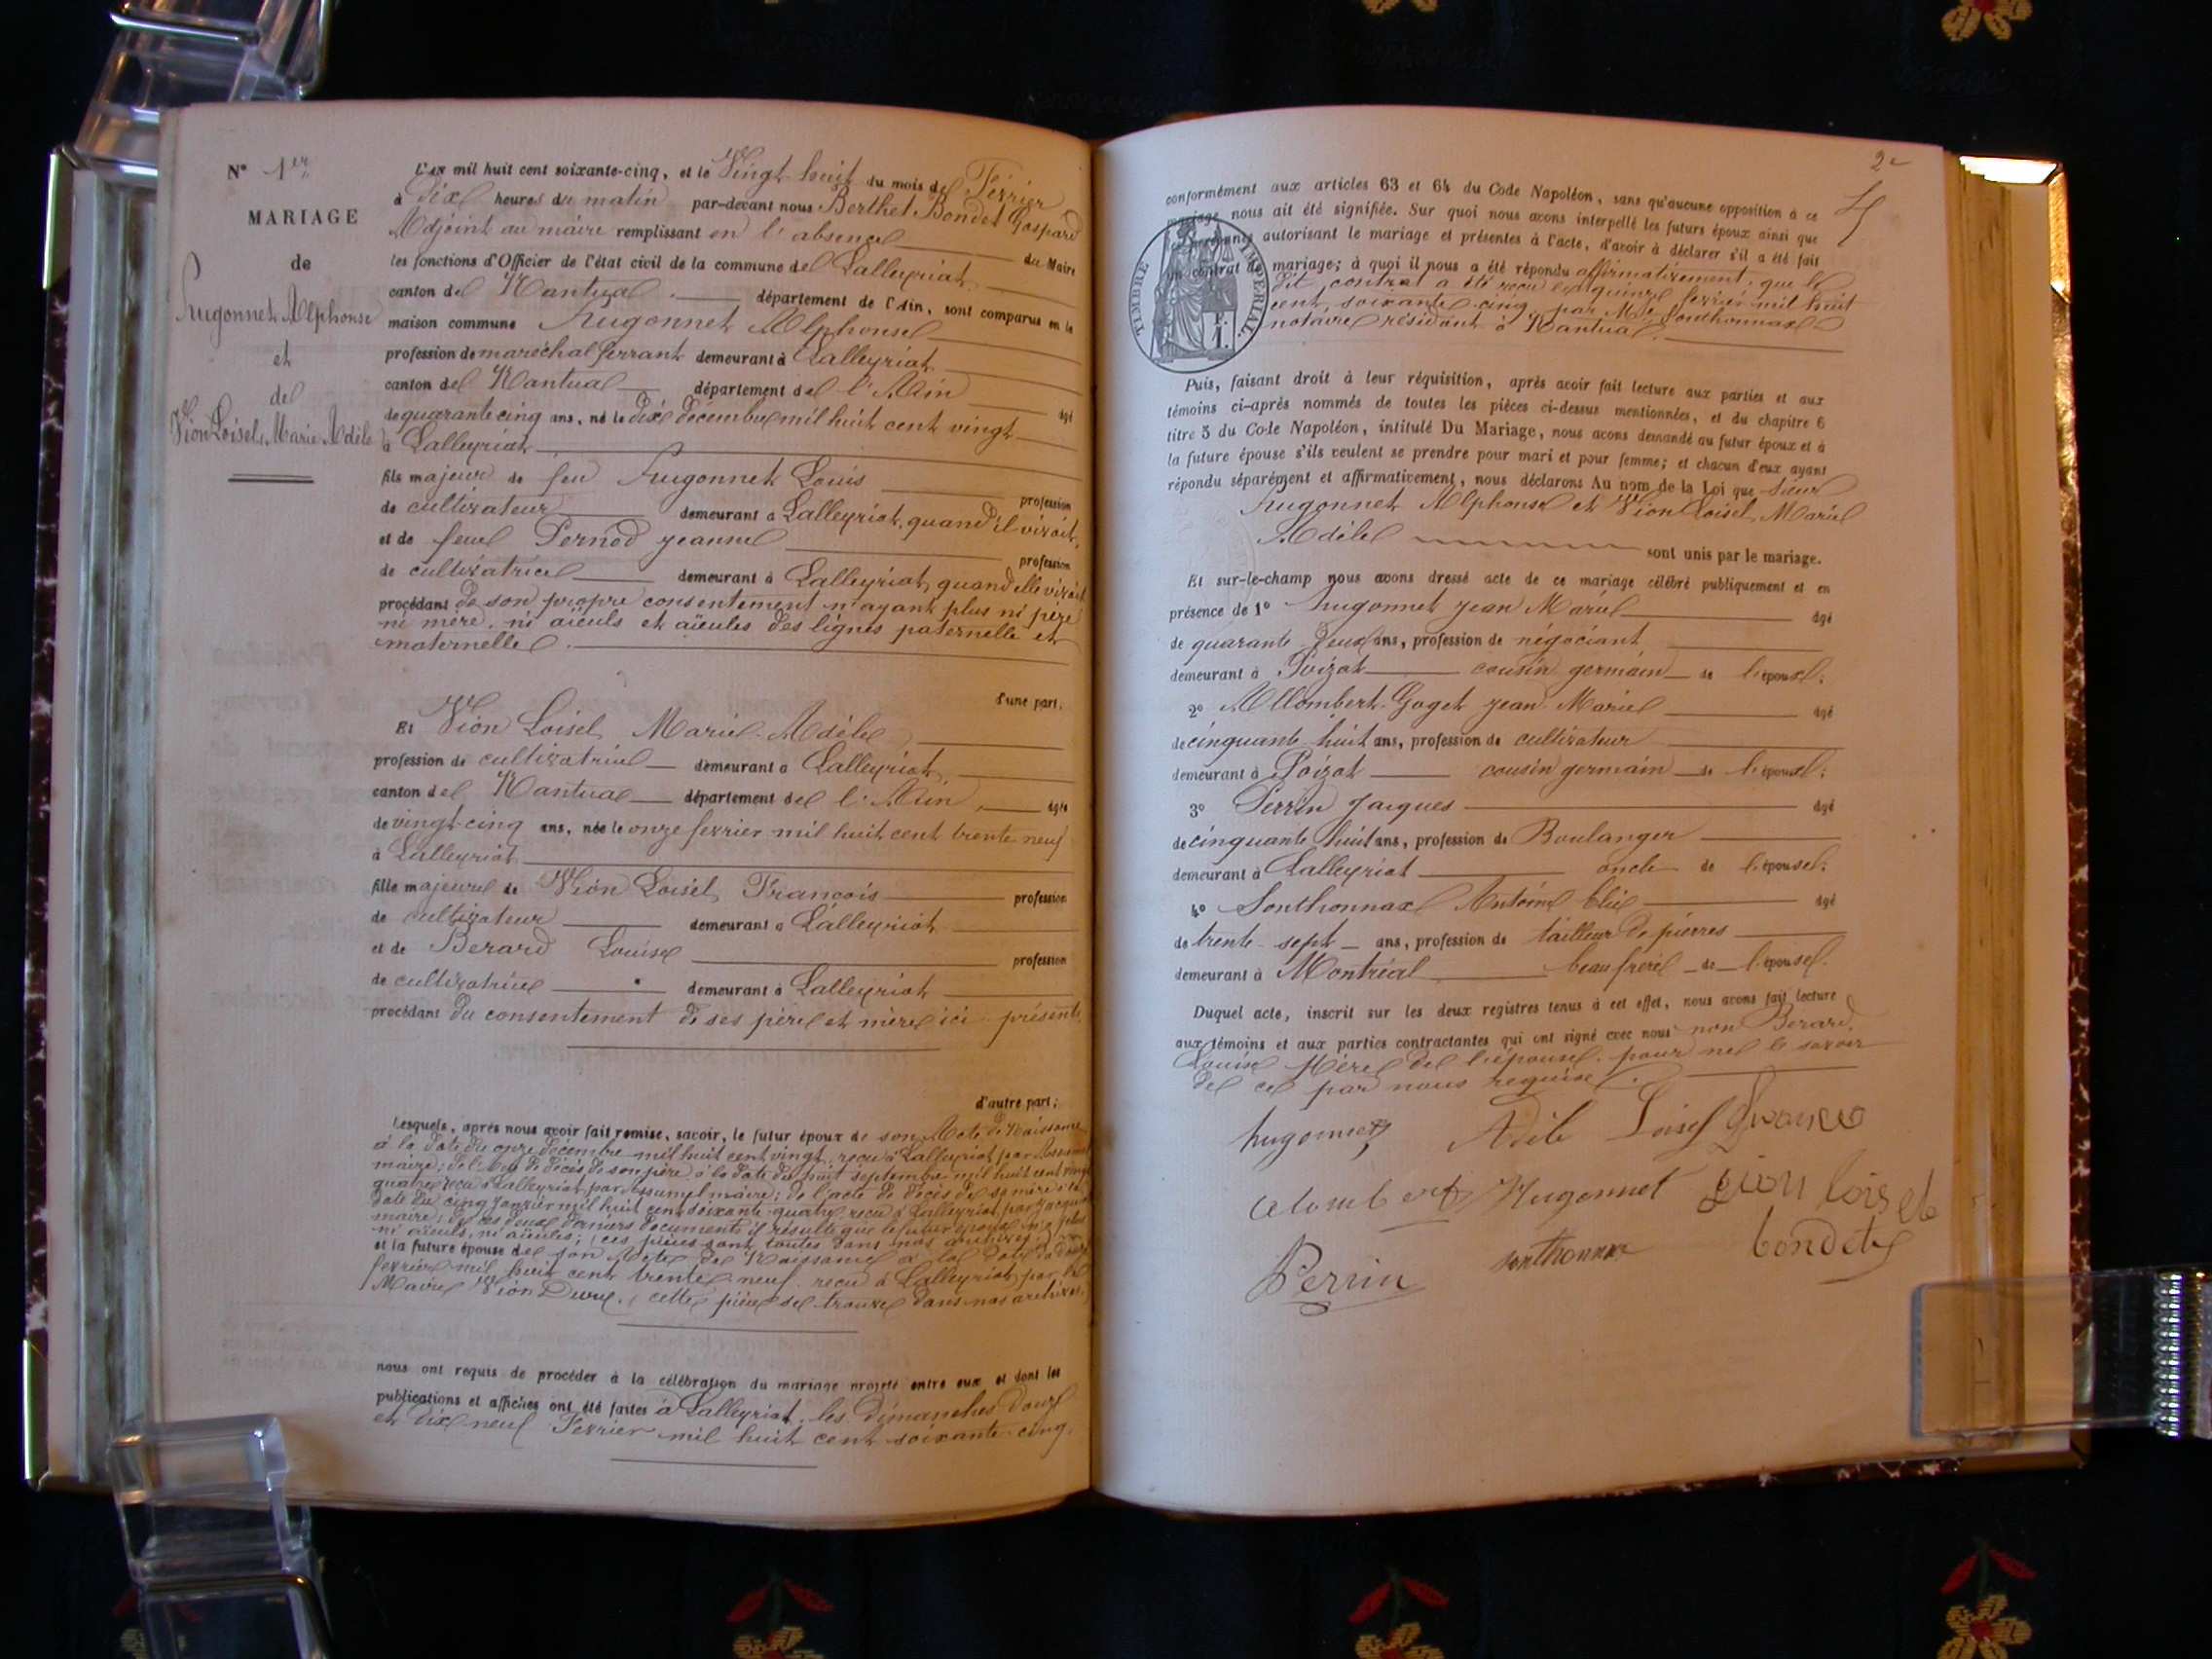 N° 1er
MARIAGE
de
Hugonnet Alphonse
et
de
Vion Loiset, Marie Adèle
L'an mil huit cent soixante-cinq, et le Vingt huit du mois de Février
à dix heures du matin par-devant nous Berthet Bondet Gaspard
Adjoint au maire remplissant en l'absence du Maire
les fonctions d'Officier de l'état civil de la commune de Lalleyriat
canton de Nantua département de l'Ain, sont comparus en la
maison commune Hugonnet Alphonse
profession de maréchal ferrant demeurant à Lalleyriat
canton de Nantua département de l'Ain âgé
de quarante cinq ans, né le dix décembre mil huit cent vingt
à Lalleyriat
fils majeur de feu Hugonnet Louis profession
de cultivateur demeurant à Lalleyriat, quand il vivait,
et de feue Pernod jeanne profession
de cultivatrice demeurant à Lalleyriat, quand elle vivait
procédant de son propre consentement n'ayant plus ni père
ni mère, ni aïeuls et aïeules des lignes paternelle et
maternelle.
d'une part.
Et Vion Loiset, Marie Adèle
profession de cultivatrice demeurant à Lalleyriat,
canton de Nantua département de l'Ain, âgée
de vingt-cinq ans, née le onze fevrier mil huit cent trente neuf
à Lalleyriat
fille majeure de Vion Loiset, François profession
de cultivateur demeurant à Lalleyriat
et de Berard Louise profession
de cultivatrice demeurant à Lalleyriat
procédant du consentement de ses père et mère ici présents.
d'autre part;
Lesquels, après nous avoir fait remise, savoir, le futur époux de son Acte de Naissance
à la date du onze décembre mil huit cent vingt, reçu à Lalleyriat par
maire; de l'acte de décès de son père à la date du huit septembre mil huit cent vingt
quatre reçu à Lalleyriat par maire; de l'acte de décès de sa mère à la
date du cinq Janvier mil huit cent soixante quatre reçu à Lalleyriat par
maire; de ces deux derniers documents il résulte que le futur époux n'a plus
ni aïeuls, ni aïeules; (ces pièces sont toutes dans nos archives)
et la future épouse de son Acte de Naissance à la date du douze
fevrier mil huit cent trente neuf reçu à Lalleyriat par le
Maire Vion, (cette pièce se trouve dans nos archives)
nous ont requis de procéder à la célébration du mariage projeté entre eux et dont les
publications et affiches ont été faites à Lalleyriat, les dimanches douze
et dix-neuf Fevrier mil huit cent soixante-cinq.
2e
conformément aux articles 63 et 64 du Code Napoléon, sans qu'aucune opposition à ce
mariage nous ait été signifiée. Sur quoi nous avons interpellé les futurs époux ainsi que
les personnes autorisant le mariage et présentes à l'acte, d'avoir à déclarer s'il a été fait
un contrat de mariage; à quoi il nous a été répondu affirmativement, que le
dit contrat a été reçu le quinze fevrier mil huit
cent soixante-cinq, par Me Sonthonnax
notaire résidant à Nantua.
TIMBRE IMPERIAL.
F.
1.
Puis, faisant droit à leur réquisition, après avoir fait lecture aux parties et aux
témoins ci-après nommés de toutes les pièces ci-dessus mentionnées, et du chapitre 6
titre 5 du Code Napoléon, intitulé Du Mariage, nous avons demandé au futur époux et à
la future épouse s'ils veulent se prendre pour mari et pour femme; et chacun d'eux ayant
répondu séparément et affirmativement, nous déclarons Au nom de la Loi que Sieur
Hugonnet Alphonse et Vion Loiset, Marie
Adèle sont unis par le mariage.
Et sur-le-champ nous avons dressé acte de ce mariage célébré publiquement et en
présence de 1° Hugonnet jean Marie âgé
de quarante deux ans, profession de négociant
demeurant à Poizat cousin germain de l'époux;
2° Allombert-Goget jean Marie âgé
de cinquante huit ans, profession de cultivateur
demeurant à Poizat cousin germain de l'époux;
3° Perrin Jacques âgé
de cinquante huit ans, profession de Boulanger
demeurant à Lalleyriat oncle de l'épouse;
4° Sonthonnax Antoine Elie âgé
de trente-sept ans, profession de tailleur de pierres
demeurant à Montréal beau frère de l'épouse.
Duquel acte, inscrit sur les deux registres tenus à cet effet, nous avons fait lecture
aux témoins et aux parties contractantes qui ont signé avec nous non Berard
Louise Mère de l'épouse, pour ne le savoir
de ce par nous requise.
hugonnet Adele Loiset
alombert Hugonnet vion loiset
Perrin sonthonnax bondet